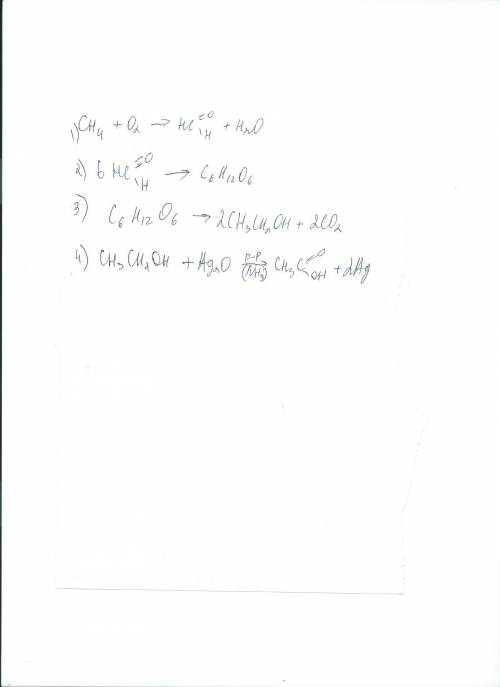 1) CH₄ + O₂ → HC=O -H + H₂O
2) 6 HC=O -H → C₆H₁₂O₆
3) C₆H₁₂O₆ → 2CH₃CH₂OH + 2CO₂
4) CH₃CH₂OH + Ag₂O р-р (NH₃) → CH₃C=O OH + 2Ag